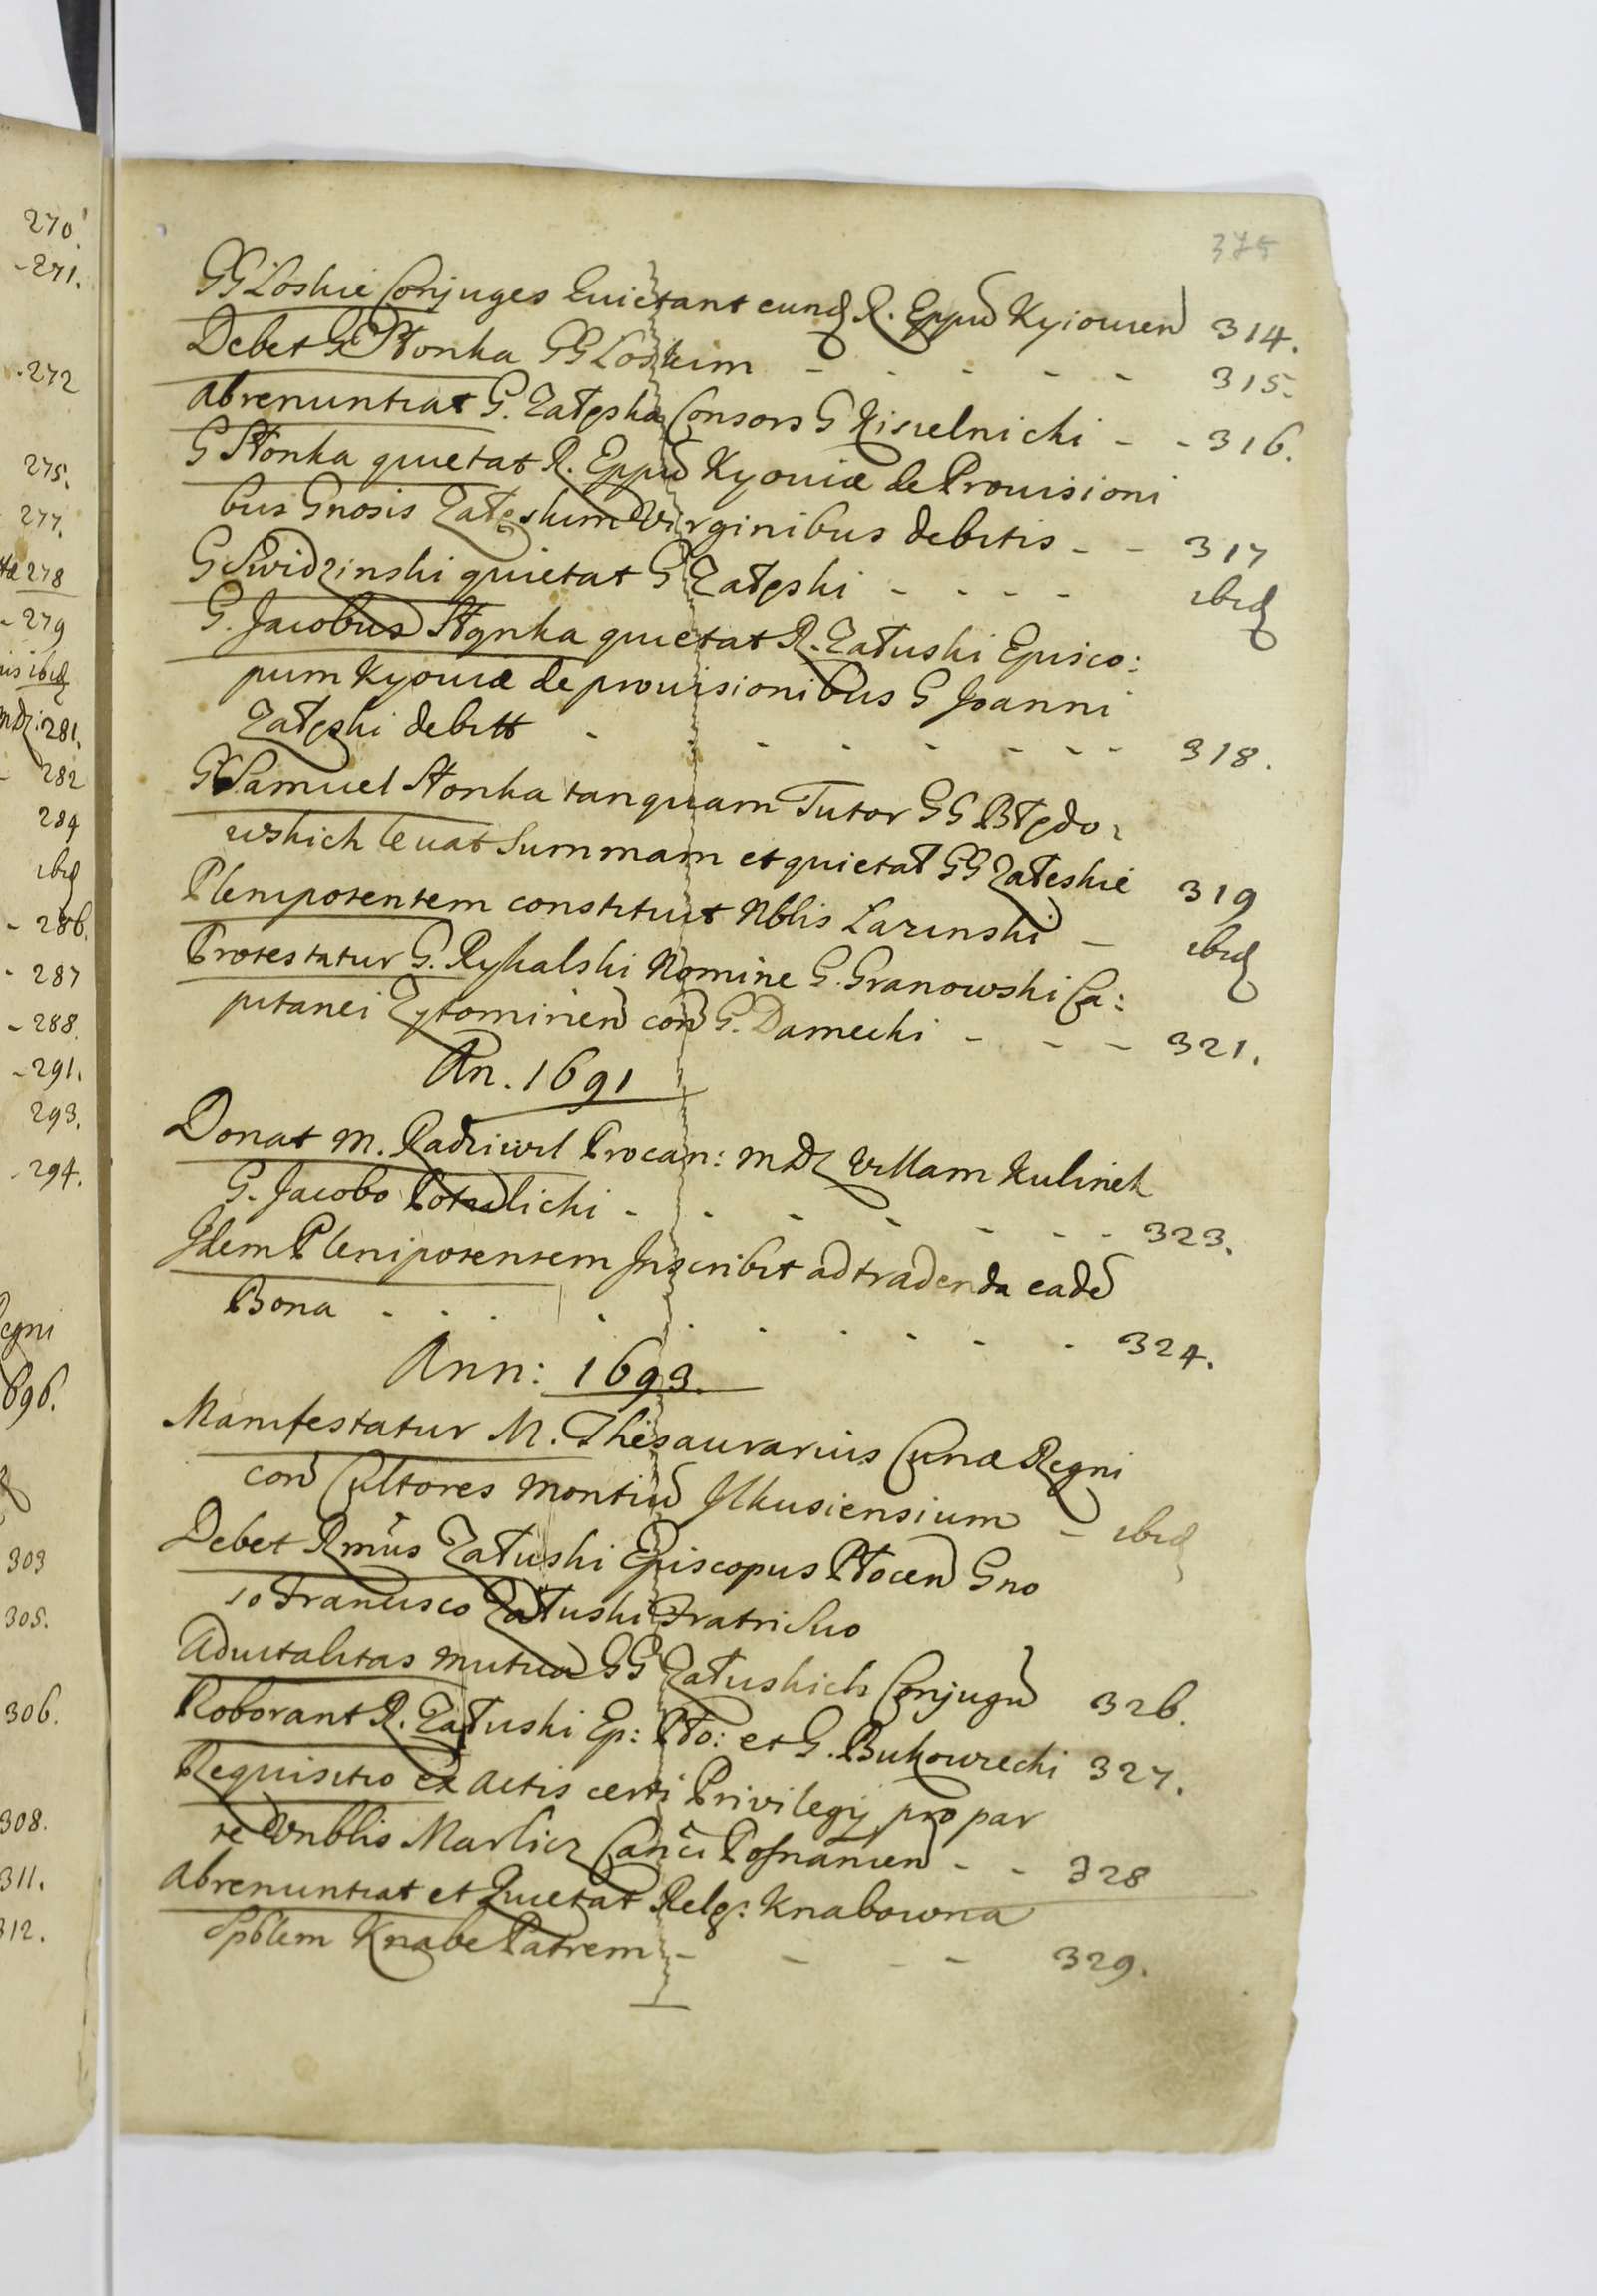 270.
-271.
-272
275.
277.
278
-279
ibid
281.
282
284
ibid
- 286.
- 287
- 288.
- 291.
293.
- 294.
Regni
696.
303
305.
306.
308.
311.
312.
375
GG Łoskie Conjuges Quietant eund R. Eppu Kyiouien 314.
Debet G Płonka GG Łoskim - - - - - 315.
Abrenuntiat G. Załęska Consors G Kisielnicki - - 316.
G Płonka quietat R. Eppu Kyouiæ de Prouisioni
bus Gnosis Załęskim Virginibus debitis - - 317
G Swidzinski quietat G Załęski - - - - ibid
G. Jacobus Płonka quietat R. Załuski Episco:
pum Kyouiæ de prouisionibus G Joanni
Załęski debitt - - - - - - - - 318.
G Samuel Płonka tanquam Tutor GG Błędo
wskich leuat Summam et quietat GG Załeskie 319
Plenipotentem constituit Nblis Łazinski - ibid
Protestatur G. Rykalski Nomine G. Granowski Ca:
pitanei Zytomirien con G. Damecki - - - 321.
An. 1691
Donat M. Radziwił Procan: MDL Villam Kulinek
G. Jacobo Potulicki - - - - - - - 323.
Idem Plenipotentem Inscribit ad tradenda eade
Bona - - - - - - - - - - 324.
Ann: 1693.
Manifestatur M. Thesaurarius Curiæ Regni
con Cultores Montiu Ilkusiensium - ibid
Debet Rmus Załuski Episcopus Płocen Gno
so Francisco Załuski Fratri Suo
Aduitalitas mutua GG Załuskich Conjugu 326.
Roborant R. Załuski Ep: Pło: et G. Bukowiecki 327.
Requisitio ex Actis certi Privilegij pro par
te Vnblis Marlicz Canci Posnanien - - 328
Abrenuntiat et Quietat Relg: Knabowna
Spblem Knabe Patrem - - - - 329.